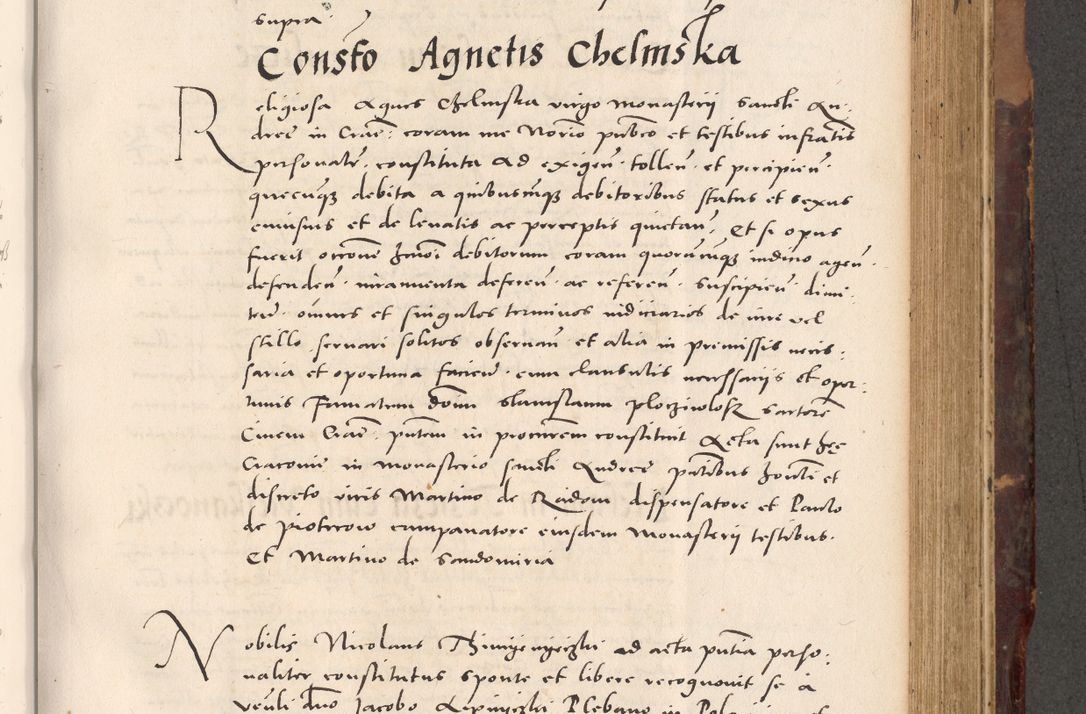 supra
Consto Agnetis Chelmska
Religiosa Agnes Chelmska virgo monasterij sancti An:
dree in Crac: coram me Notrio publico et testibus infratis
personalr: constituta ad exigen: tollen: et percipien:
quecunq debita a quibuscunq debitoribus status et sexus
cuiusuis et de leuatis ac perceptis quietan: Et si opus
fuerit occone hmoi debitorum coram quorumcunq iudicio agen:
defenden: iuramenta deferen: ac referen: suscipien: dimi:
ten: omnes et singulos terminos iudiciarios de iure vel
stillo seruari solitos obseruan: et alia in premissis neces:
saria et oportuna facien: cum clausulis necessarijs et opor:
tunis Famatum domi Stanislaum sartore
Ciuem Crac: pntem in procurem constituit Acta sunt hec
Cracouie in monasterio sancti Andree pntibus honti et
discreto viris Martino de Radom dispensatore et Paulo
de Piotrcow campanatore eiusdem monasterij testibus
Et Martino de Sandomiria
Nobilis Nicolaus ad acta pntia perso:
naliter constitutus sponte et libere recognouit se a
veuli dno Jacobo Plebano in